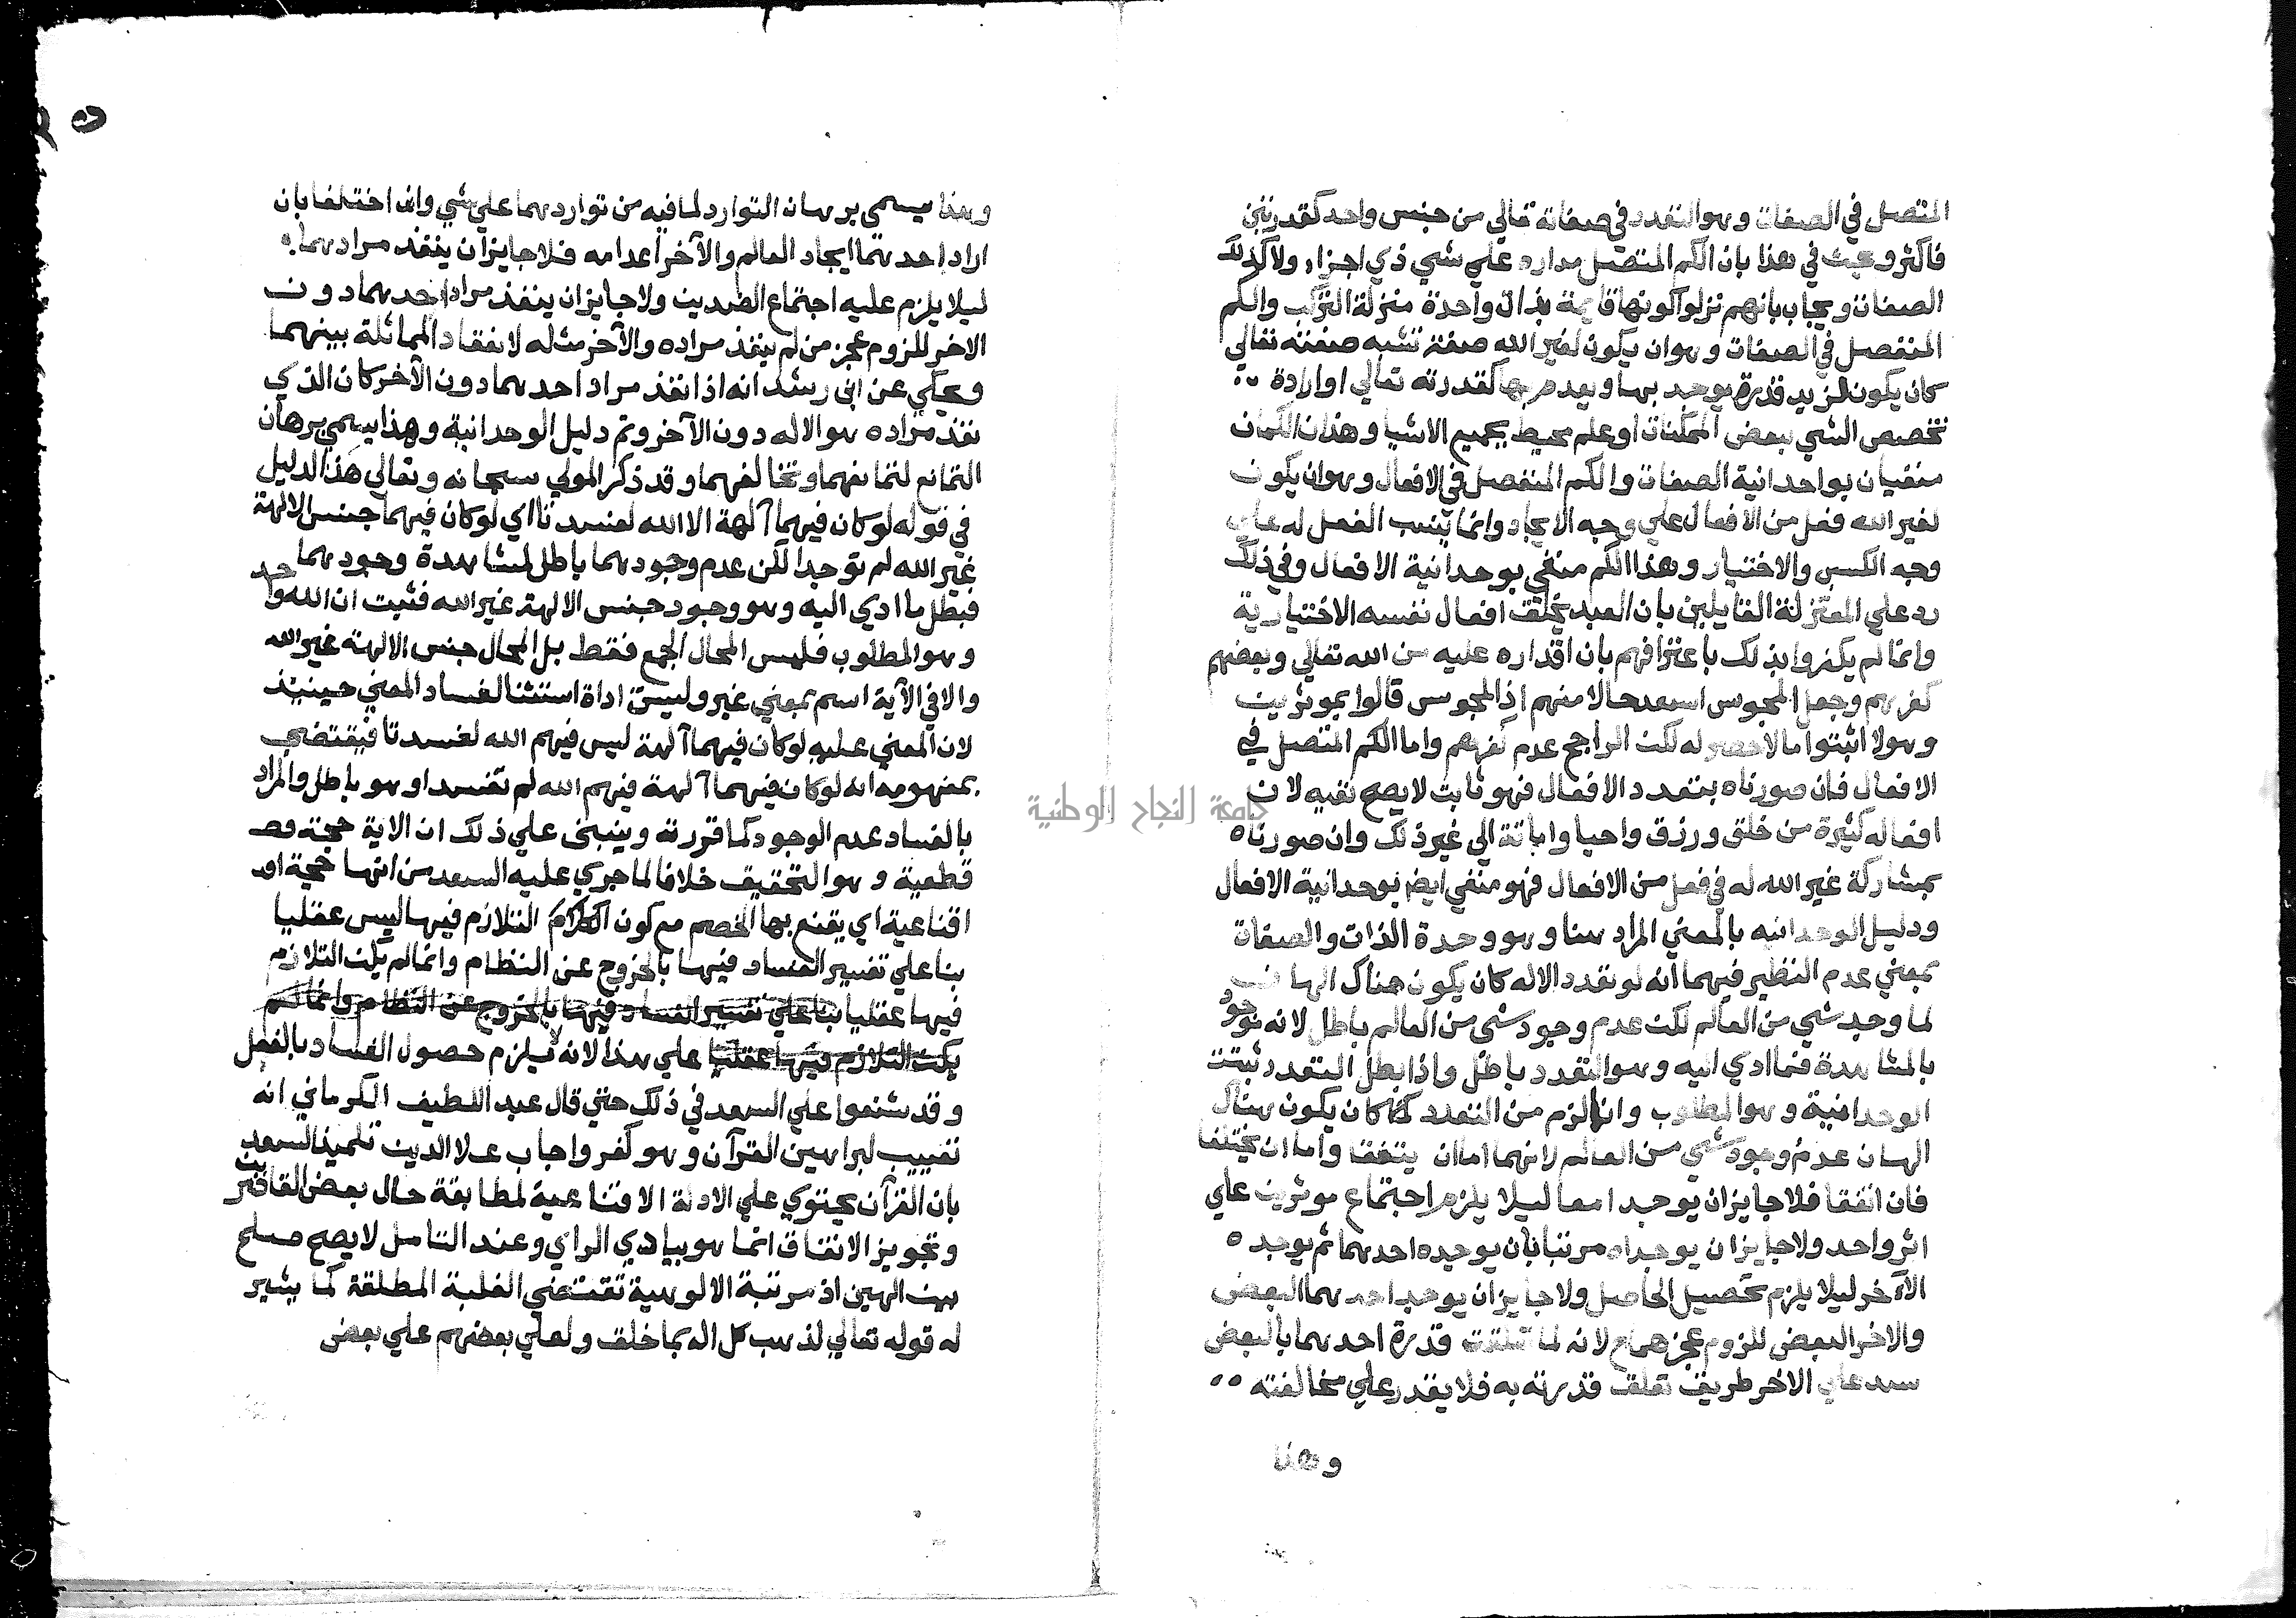 المتصل في الصفات وهو التعدد في صفاته تعالي من جنس واحد كقدرتين
فاكثر وبحث في هذا بان الكم المتصل مداره علي شي ذي اجزاء ولا كذلك
الصفات ويجاب بانهم نزلوا كونها قايمة بذات واحدة منزلة التركب والكم
المنفصل في الصفات وهو ان يكون لغير الله صفة تشبه صفته تعالي
كان يكون لزيد قدرة يوجد بها ويعدم بها كقدرته تعالي او ارادة
تخصص الشي ببعض الممكنات او علم محيط بجميع الاشيا وهذان الكمان
منفيان بواحدانية الصفات والكم المنفصل في الافعال وهو ان يكون
لغير الله فعل من الافعال علي وجه الايجاد وانما ينسب الفعل له علي
وجه الكسب والاختيار وهذا الكم منفي بوحدانية الافعال وفي ذلك
رد علي المعتزلة القايلين بان العبد يخلق افعال نفسه الاختيارية
وانما لم يكفروا بذلك باعترافهم بان اقداره عليه من الله تعالي وبعضهم
كفرهم وجعل المجوس اسعد حالا منهم اذ المجوس قالوا بموثرين
وهولا اثبتوا ما لا حصر له لكن الراجح عدم كفرهم واما الكم المتصل في
الافعال فان صورناه بتعدد الافعال فهو ثابت لا يصح نفيه لان
افعاله كثيرة من خلق ورزق واحيا واماتة الي غير ذلك وان صورناه
بمشاركة غير الله له في فعل من الافعال فهو منفي ايضا بوحدانية الافعال
ودليل الوحدانيه بالمعني المراد هنا وهو وحدة الذات والصفات
بمعني عدم النظير فيهما انه لو تعدد الاله كان يكون هناك الهان
لما وجد شي من العالم لكن عدم وجود شي من العالم باطل لانه موجود
بالمشاهدة فما ادي اليه وهو التعدد باطل واذا بطل التعدد ثبتت
الوحدانية وهو المطلوب وانما لزم من التعدد كان يكون هناك
الهان عدم وجود شي من العالم لانهما اما ان يتفقا واما ان يختلفا
فان اتفقا فلا جايز ان يوجدا معا ليلا يلزم اجتماع موثرين علي
اثر واحد ولا جايز ان يوجداه مرتبا بان يوجده احدهما ثم يوجده
الآخر ليلا يلزم تحصيل الحاصل ولا جايز ان يوجد احدهما البعض
والاخر البعض للزوم عجزهما لانه لما تعلقت قدرة احدهما بالبعض
سد علي الاخر طريق تعلق قدرته به فلا يقدر علي مخالفته
وهذا
وهذا يسمي برهان التوارد لما فيه من تواردهما علي شي وان اختلفا بان
اراد احدهما ايجاد العالم والآخر اعدامه فلا جايز ان ينفذ مرادهما
ليلا يلزم عليه اجتماع الضدين ولا جايز ان ينفذ مراد احدهما دون
الاخر للزوم عجز من لم ينفذ مراده والآخر مثله لانعقاد المماثلة بينهما
ويحكي عن ابن رشد انه اذا نفذ مراد احدهما دون الآخر كان الذي
نفذ مراده هو الاله دون الآخر وتم دليل الوحدانية وهذا يسمي برهان
التمانع لتمانعهما وتخالفهما وقد ذكر المولي سبحانه وتعالي هذا الدليل
في قوله لو كان فيهما آلهة الا الله لفسدتا اي لو كان فيهما جنس الالهة
غير الله لم توجدا لكن عدم وجودهما باطل لمشاهدة وجودهما
فبطل ما ادي اليه وهو وجود جنس الالهة غير الله فثبت ان الله واحد
وهو المطلوب فليس المحال الجمع فقط بل المحال جنس الالهة غير الله
والا في الآية اسم بمعني غير وليست اداة استثنا لفساد المعني حينيذ
لان المعني عليه لو كان فيهما آلهة ليس فيهم الله لفسدتا فيقتضي
بمفهومه انه لو كان فيهما آلهة فيهم الله لم تفسدا وهو باطل والمراد
بالفساد عدم الوجود كما قررته وينبني علي ذلك ان الاية حجة
قطعية وهو التحقيق خلافا لما جري عليه السعد من انها حجة
اقناعية اي يقنع بها الخصم مع كون التلازم فيها ليس عقليا
بنا علي تفسير الفساد فيها بالخروج عن النظام وانما لم يكن التلازم
فيها عقليا بنا علي تفسير الفساد فيها بالخروج عن النظام وانما لم
يكن التلازم فيها عقليا علي هذا لانه لا يلزم حصول الفساد بالفعل
وقد شنعوا علي السعد في ذلك حتي قال عبد اللطيف الكرماني انه
تعييب لبراهين القرآن وهو كفر واجاب علا الدين تلميذ السعد
بان القرآن يحتوي علي الادلة الاقناعية لمطابقة حال بعض القاصرين
وتجويز الاتفاق انما هو ببادي الراي وعند التامل لا يصح صلح
بين الهين اذ مرتبة الالوهية تقتضي الغلبة المطلقة كما يشير
له قوله تعالي لذهب كل اله بما خلق ولعلي بعضهم علي بعض
جامعة النجاح الوطنية